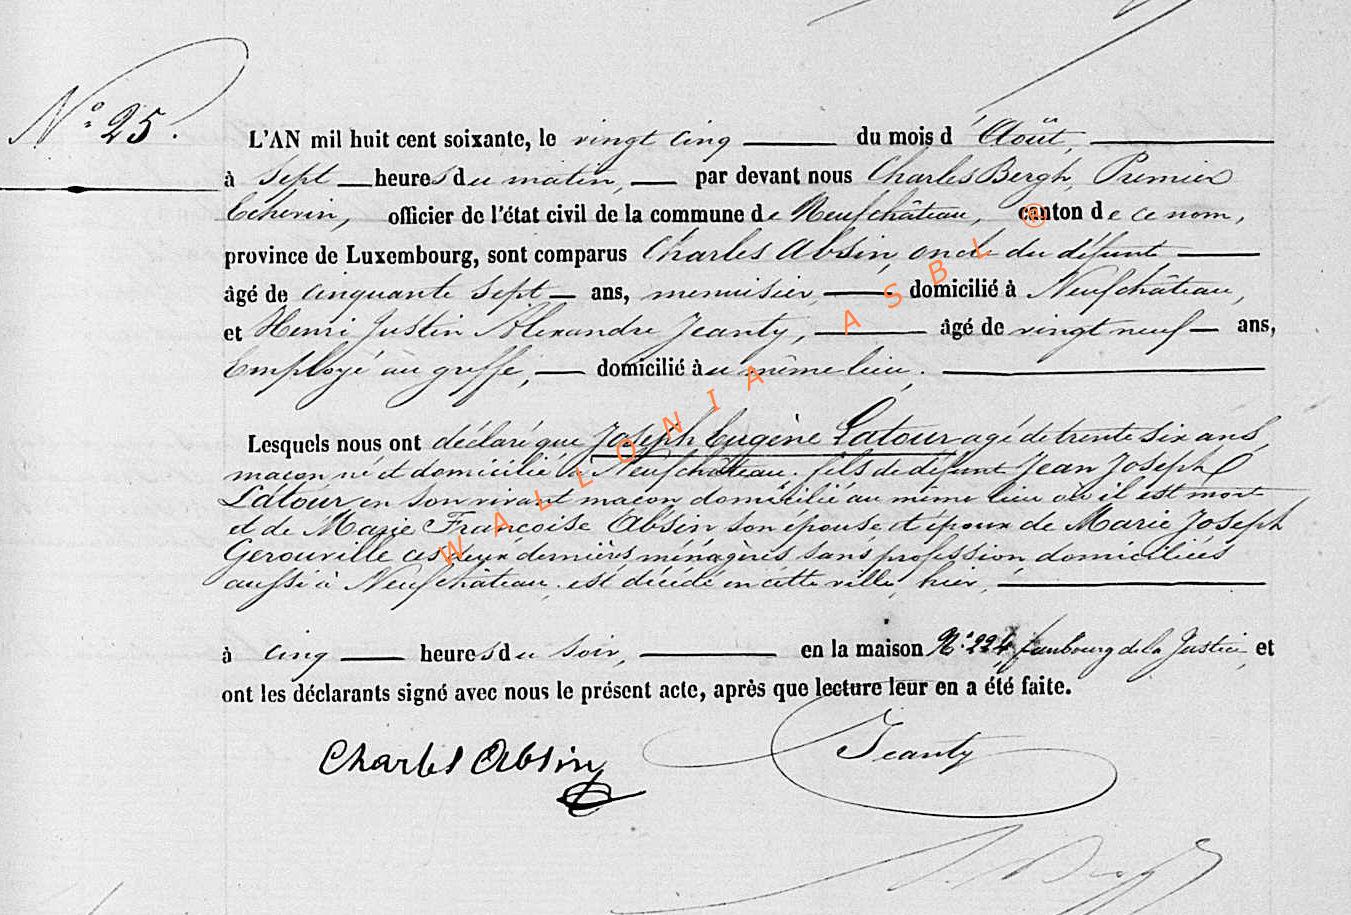 N.° 25.
L'AN mil huit cent soixante, le vingt cinq du mois d'Août,
à sept heures du matin, par devant nous Charles Bergh, Premier
Echevin, officier de l'état civil de la commune de Neufchâteau, canton de ce nom,
province de Luxembourg, sont comparus Charles Absin, oncle du défunt
âgé de cinquante sept ans, menuisier, domicilié à Neufchâteau,
et Henri Justin Alexandre Jeanty, âgé de vingt neuf ans,
Employé au greffe, domicilié au même lieu.
Lesquels nous ont déclaré que Joseph Eugène Latour agé de trente six ans,
maçon né et domicilié à Neufchâteau, fils de défunt Jean Joseph
Latour en son vivant maçon domicilié au même lieu où il est mort
et de Marie Françoise Absin son épouse, et époux de Marie Joseph
Gerouville ces deux dernières ménagères sans profession, domiciliées
aussi à Neufchâteau, est décédé en cette ville, hier,
à cinq heures du soir, en la maison N.° 224, faubourg de la Justice, et
ont les déclarants signé avec nous le présent acte, après que lecture leur en a été faite.
Charles Absin Jeanty
WALLONIA ASBL ®